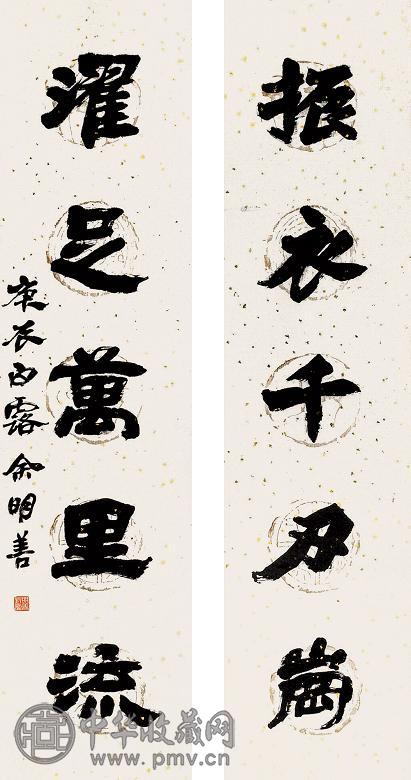 振衣千刃崗
濯足萬里流
庚辰白露余明善
中华收藏网
www.pmv.cn